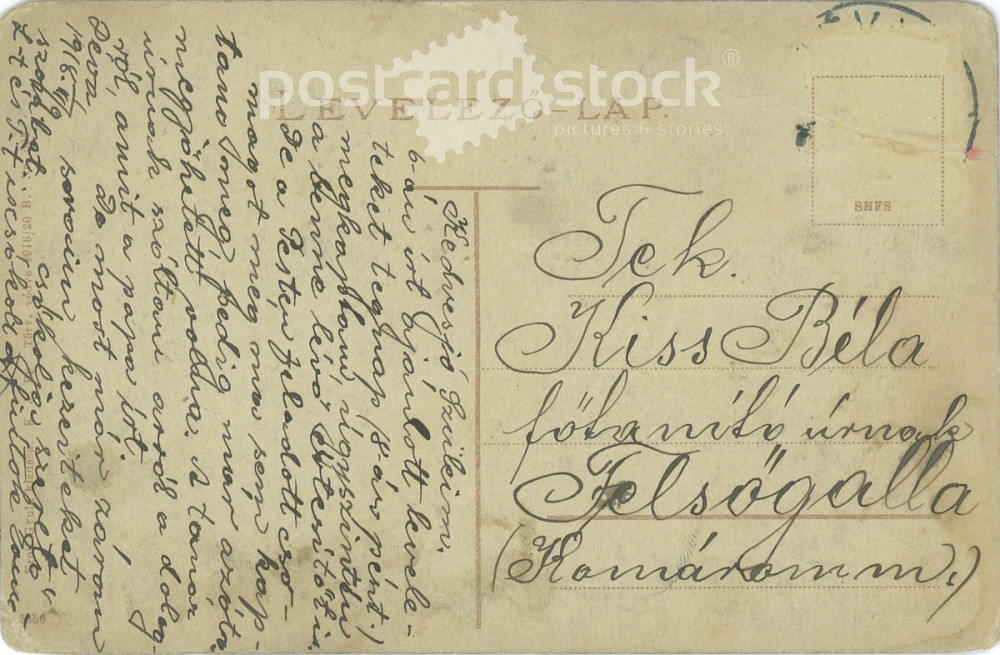 postcard stock®
pictures & stories
LEVELEZŐ-LAP.
SHFS
Tek.
Kiss Béla
főtanító úrnak
Felsőgalla
(Komárom m.)
Kedves jó Szüleim.
6-án írt ajánlott levele-
teket tegnap (8-án pént.)
megkaptam, úgyszintén
a benne lévő is.
De a Pesten feladott cso-
magot meg ma sem kap-
tam meg, pedig már azóta
megjöhetett volna. A tanár
úrnak szóltam arról a dolog-
ról, amit a papa írt.
De most már zárom
soraim kezeiteket
csókolja szerető
Déva, 1916.